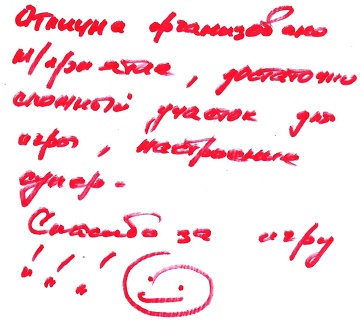 Отлична организовано
м/приятие, достаточно
сложный участок для
игры, настроение
супер.
Спасибо за игру
!!!